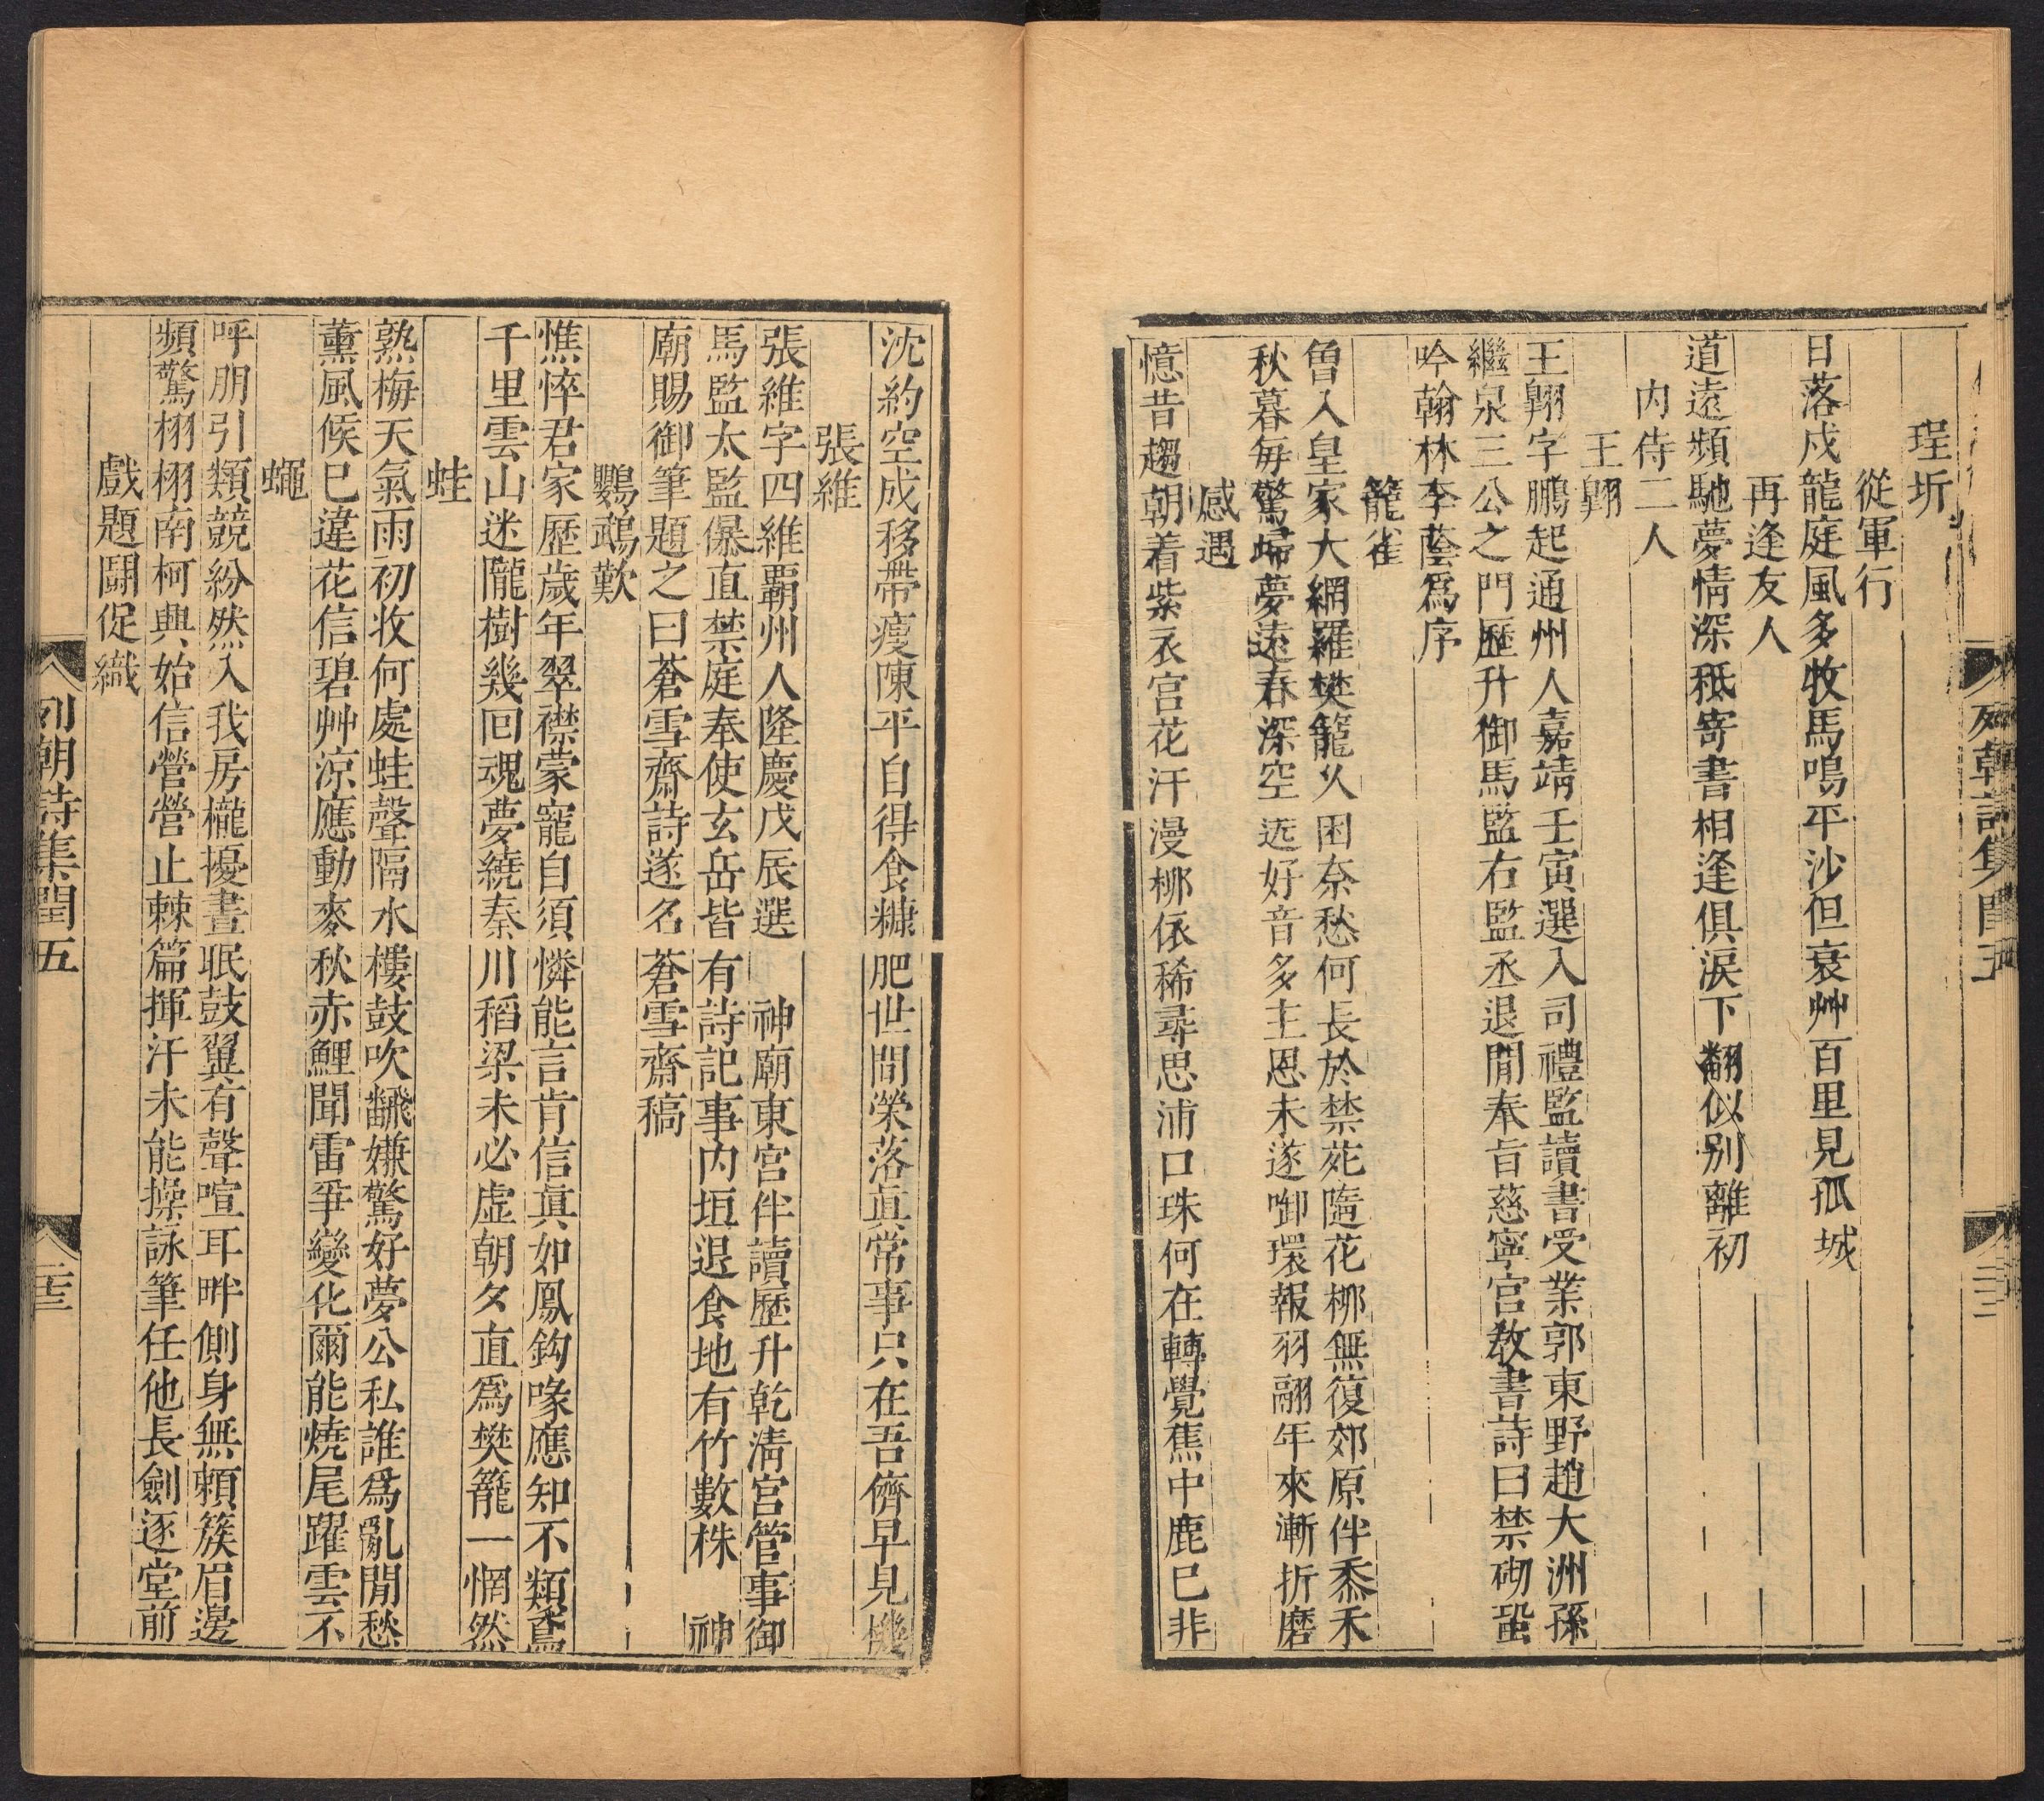 珵圻
從軍行
日落戍龍庭風多牧馬鳴平沙但衰艸百里見孤城
再逢友人
道遠頻馳夢情深秪寄書相逢俱淚下翻似别離初
内侍二人
王翺
王翺字鵬起通州人嘉靖壬寅選入司禮監讀書受業郭東野趙大洲孫
繼泉三公之門歷升御馬監右監丞退閒奉旨慈寧宮教書詩曰禁砌蛩
吟翰林李蔭爲序
籠雀
曾入皇家大網羅樊籠久困奈愁何長於禁苑隨花柳無復郊原伴黍禾
秋暮每驚歸夢遠春深空送好音多主恩未遂啣環報羽翮年來漸折磨
感遇
憶昔趨朝着紫衣宫花汗漫柳依稀尋思浦口珠何在轉覺蕉中鹿已非
列朝詩集閏五
沈約空成移帶瘦陳平自得食糠肥世間榮落眞常事只在吾儕早見機
張維
張維字四維覇州人隆慶戊辰選 神廟東宮伴讀歷升乾淸宮管事御
馬監太監㬥直禁庭奉使玄岳皆有詩記事内垣退食地有竹數株 神
廟賜御筆題之曰蒼雪齋詩遂名蒼雪齋稿
鸚鵡歎
憔悴君家歷歲年翠襟蒙寵自須憐能言肯信眞如鳳鈎喙應知不類鳶
千里雲山迷隴樹幾回魂夢繞秦川稻梁未必虛朝夕直爲樊籠一惘然
蛙
熟梅天氣雨初收何處蛙聲隔水樓鼓吹飜嫌驚好夢公私誰爲亂閒愁
薰風候巳違花信碧艸涼應動麥秋赤鯉聞雷爭變化爾能燒尾躍雲不
蠅
呼朋引類競紛然入我房櫳擾晝眠鼓翼有聲喧耳畔側身無賴簇眉邊
頻驚栩栩南柯興始信營營止棘篇揮汗未能操詠筆任他長劍逐堂前
戲題鬪促織
列朝詩集閏五